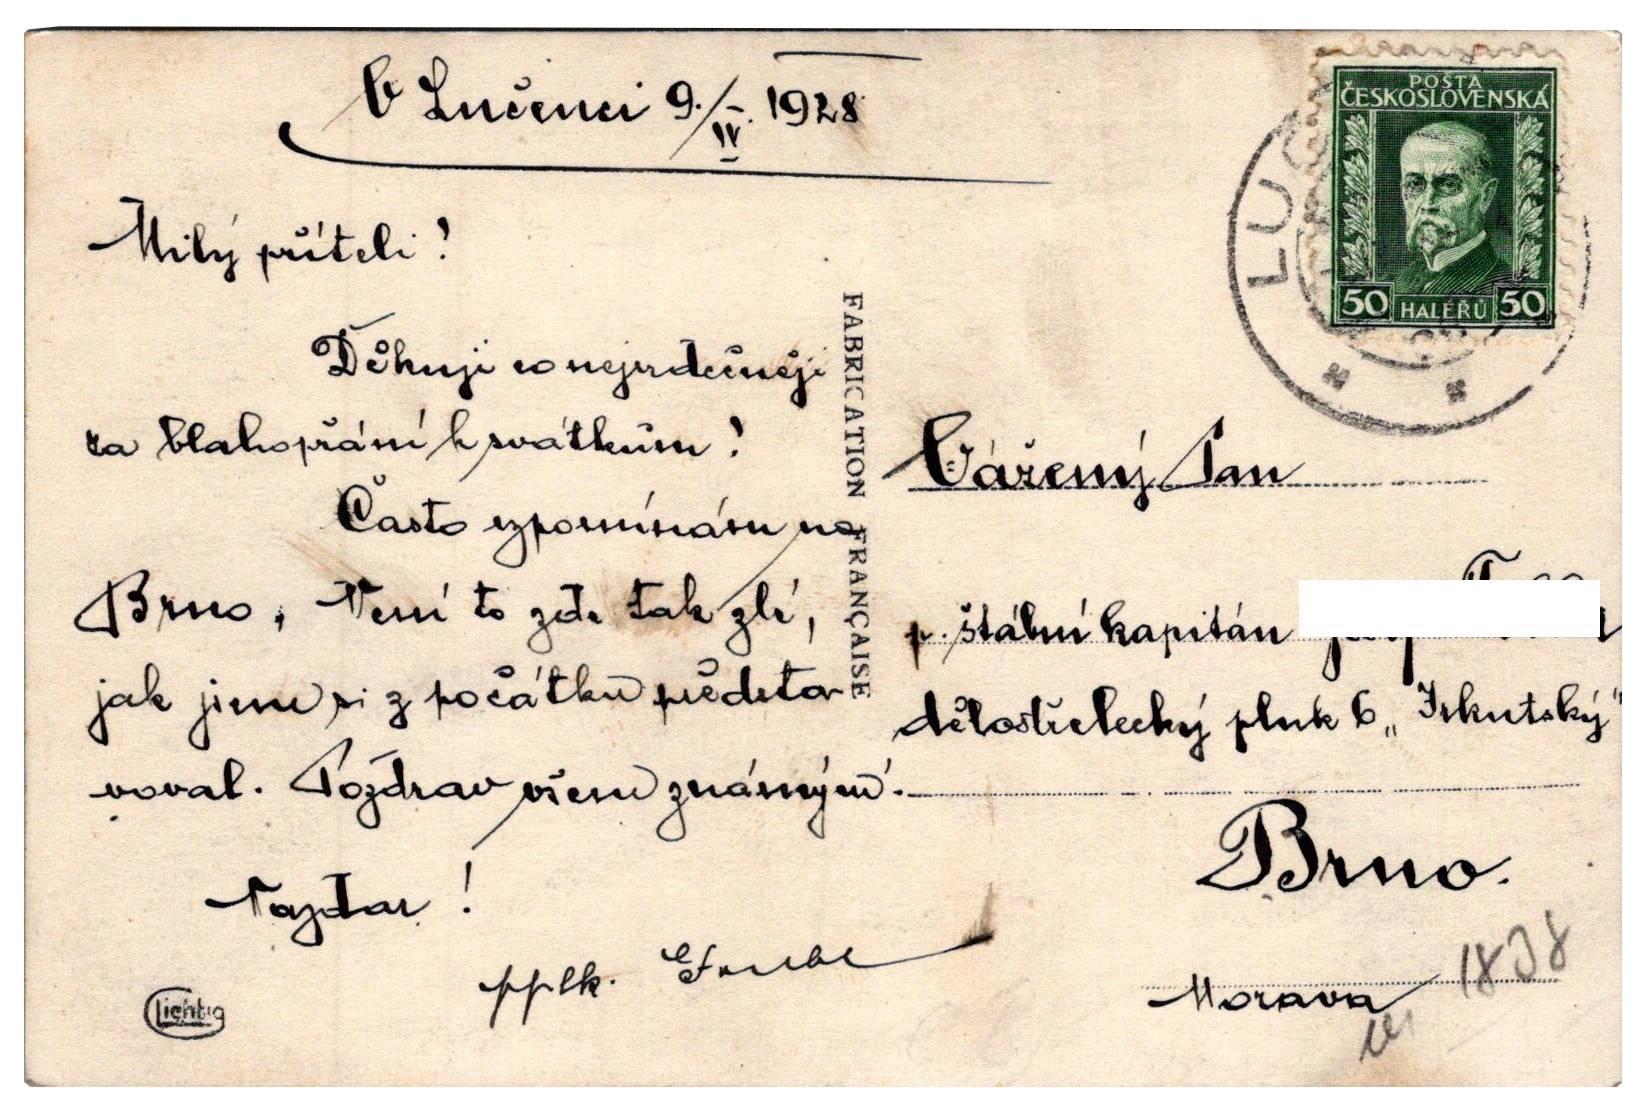 V Lučenci 9./IV. 1928
Milý příteli!
Děkuji co nejsrdečněji
za blahopřání k svátkům!
Často vzpomínám na
Brno, Není to zde tak zlé,
jak jsem si z počátku předsta
voval. Pozdrav všem známým.
Nazdar!
pplk.
Lichtig
FABRICATION FRANÇAISE
POŠTA
ČESKOSLOVENSKÁ
50 HALÉŘŮ 50
LUČ
Vážený Pan
p. štábní kapitán
dělostřelecký pluk 6 „Irkutský"
Brno.
Morava
1838